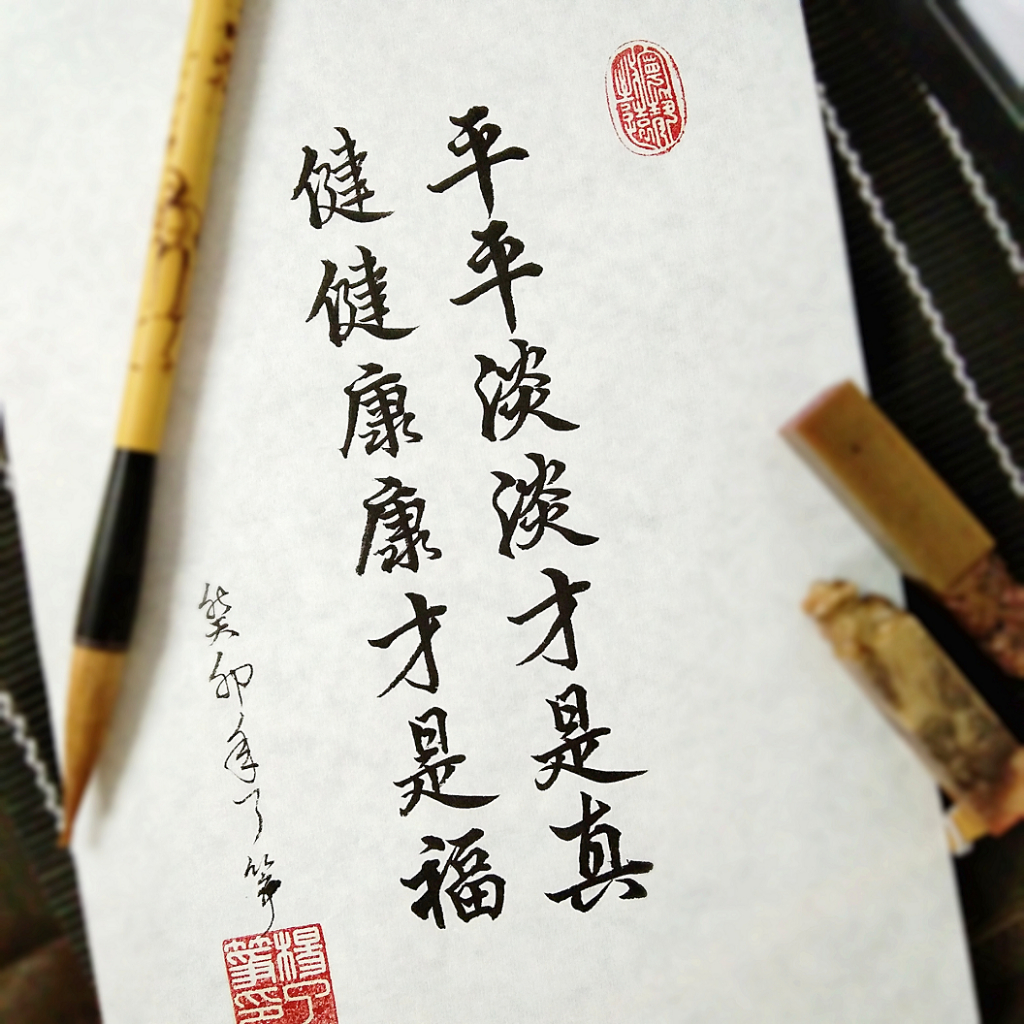 平平淡淡才是真
健健康康才是福
癸卯年了筝
杨了筝印